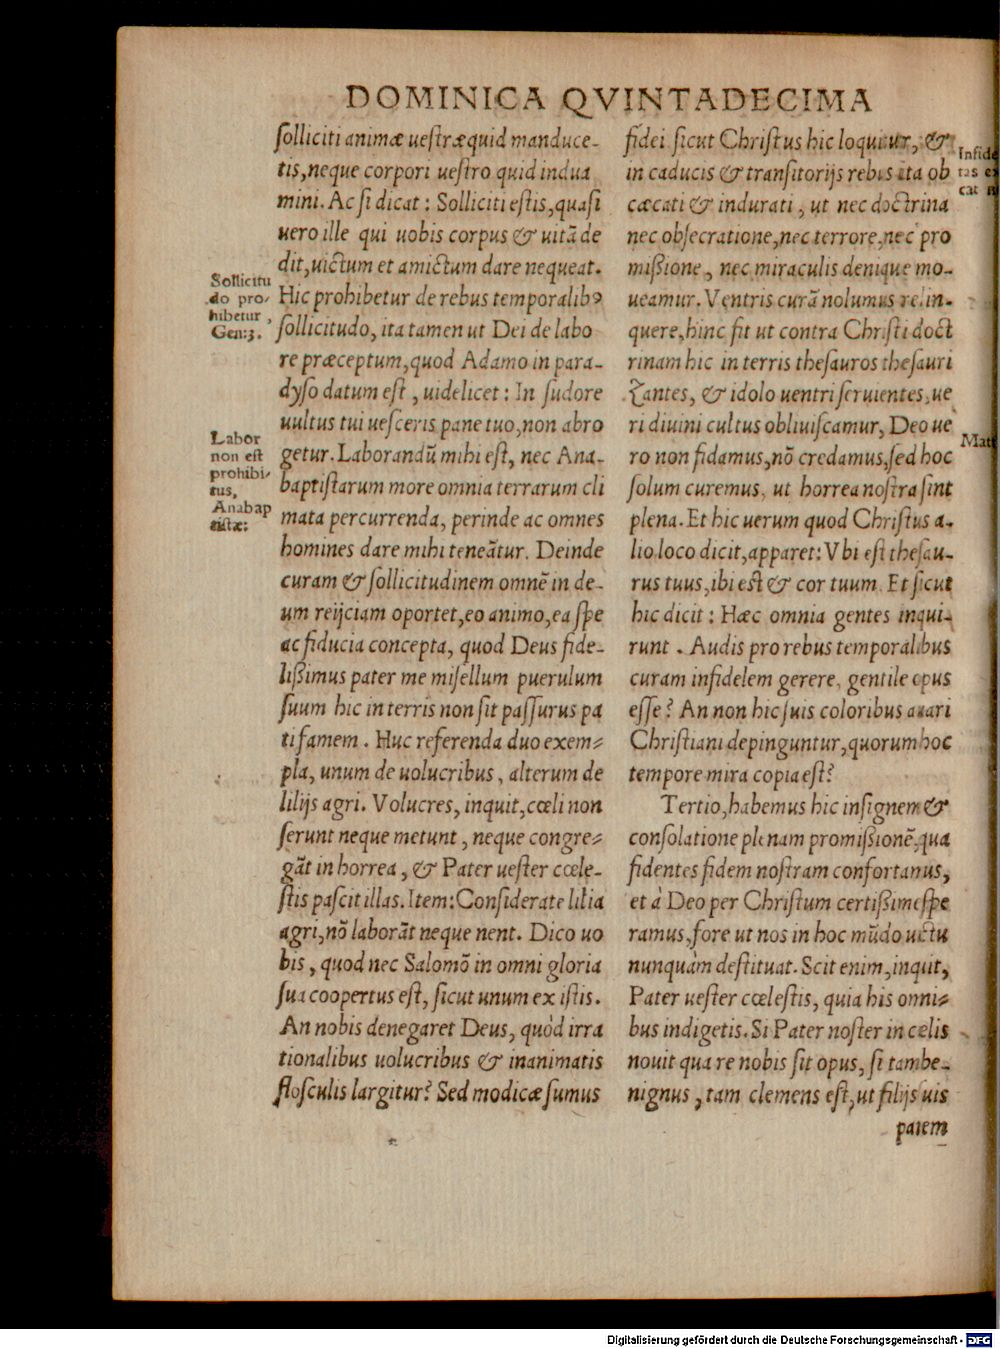 DOMINICA QVINTADECIMA
ſolliciti animæ ueſtræ quid manduce-
tis, neque corpori ueſtro quid indua
mini. Ac ſi dicat : Solliciti eſtis, quaſi
uero ille qui uobis corpus & uitā de
dit, uictum et amictum dare nequeat.
Hic prohibetur de rebus temporalibꝰ
ſollicitudo, ita tamen ut Dei de labo
re præceptum, quod Adamo in para-
dyſo datum eſt, uidelicet : In ſudore
uultus tui ueſceris pane tuo, non abro
getur. Laborandū mihi eſt, nec Ana-
baptiſtarum more omnia terrarum cli
mata percurrenda, perinde ac omnes
homines dare mihi teneātur. Deinde
curam & ſollicitudinem omnē in de-
um reijciam oportet, eo animo, ea ſpe
ac fiducia concepta, quod Deus fide-
lißimus pater me miſellum puerulum
ſuum hic in terris non ſit paſſurus pa
ti famem. Huc referenda duo exem-
pla, unum de uolucribus, alterum de
lilijs agri. Volucres, inquit, cœli non
ſerunt neque metunt, neque congre-
gāt in horrea, & Pater ueſter cœle-
ſtis paſcit illas. Item: Conſiderate lilia
agri, nō laborāt neque nent. Dico uo
bis, quod nec Salomō in omni gloria
ſua coopertus eſt, ſicut unum ex iſtis.
An nobis denegaret Deus, quòd irra
tionalibus uolucribus & inanimatis
floſculis largitur? Sed modicæ ſumus
Sollicitu
do pro-
hibetur,
Gen:3.
Labor
non eſt
prohibi-
tus,
Anabap
tiſtæ:
fidei ſicut Chriſtus hic loquitur, &
in caducis & tranſitorijs rebus ita ob
cæcati & indurati, ut nec doctrina
nec obſecratione, nec terrore, nec pro
mißione, nec miraculis denique mo-
ueamur. Ventris curā nolumus relin-
quere, hinc fit ut contra Chriſti doct
rinam hic in terris theſauros theſauri
zantes, & idolo uentri ſeruientes, ue
ri diuini cultus obliuiſcamur, Deo ue
ro non fidamus, nō credamus, ſed hoc
ſolum curemus, ut horrea noſtra ſint
plena. Et hic uerum quod Chriſtus a-
lio loco dicit, apparet: Vbi eſt theſau-
rus tuus, ibi eſt & cor tuum. Et ſicut
hic dicit : Hæc omnia gentes inqui-
runt. Audis pro rebus temporalibus
curam infidelem gerere, gentile opus
eſſe? An non hic ſuis coloribus auari
Chriſtiani depinguntur, quorum hoc
tempore mira copia eſt?
Tertio, habemus hic inſignem &
conſolatione plenam promißionē, qua
fidentes fidem noſtram confortamus,
et à Deo per Chriſtum certißime ſpe
ramus, fore ut nos in hoc mūdo uictu
nunquàm deſtituat. Scit enim, inquit,
Pater ueſter cœleſtis, quia his omni-
bus indigetis. Si Pater noſter in cælis
nouit qua re nobis ſit opus, ſi tam be-
nignus, tam clemens eſt, ut filijs ſuis
panem
Infide
tas
cat
Digitalisierung gefördert durch die Deutsche Forschungsgemeinschaft - DFG